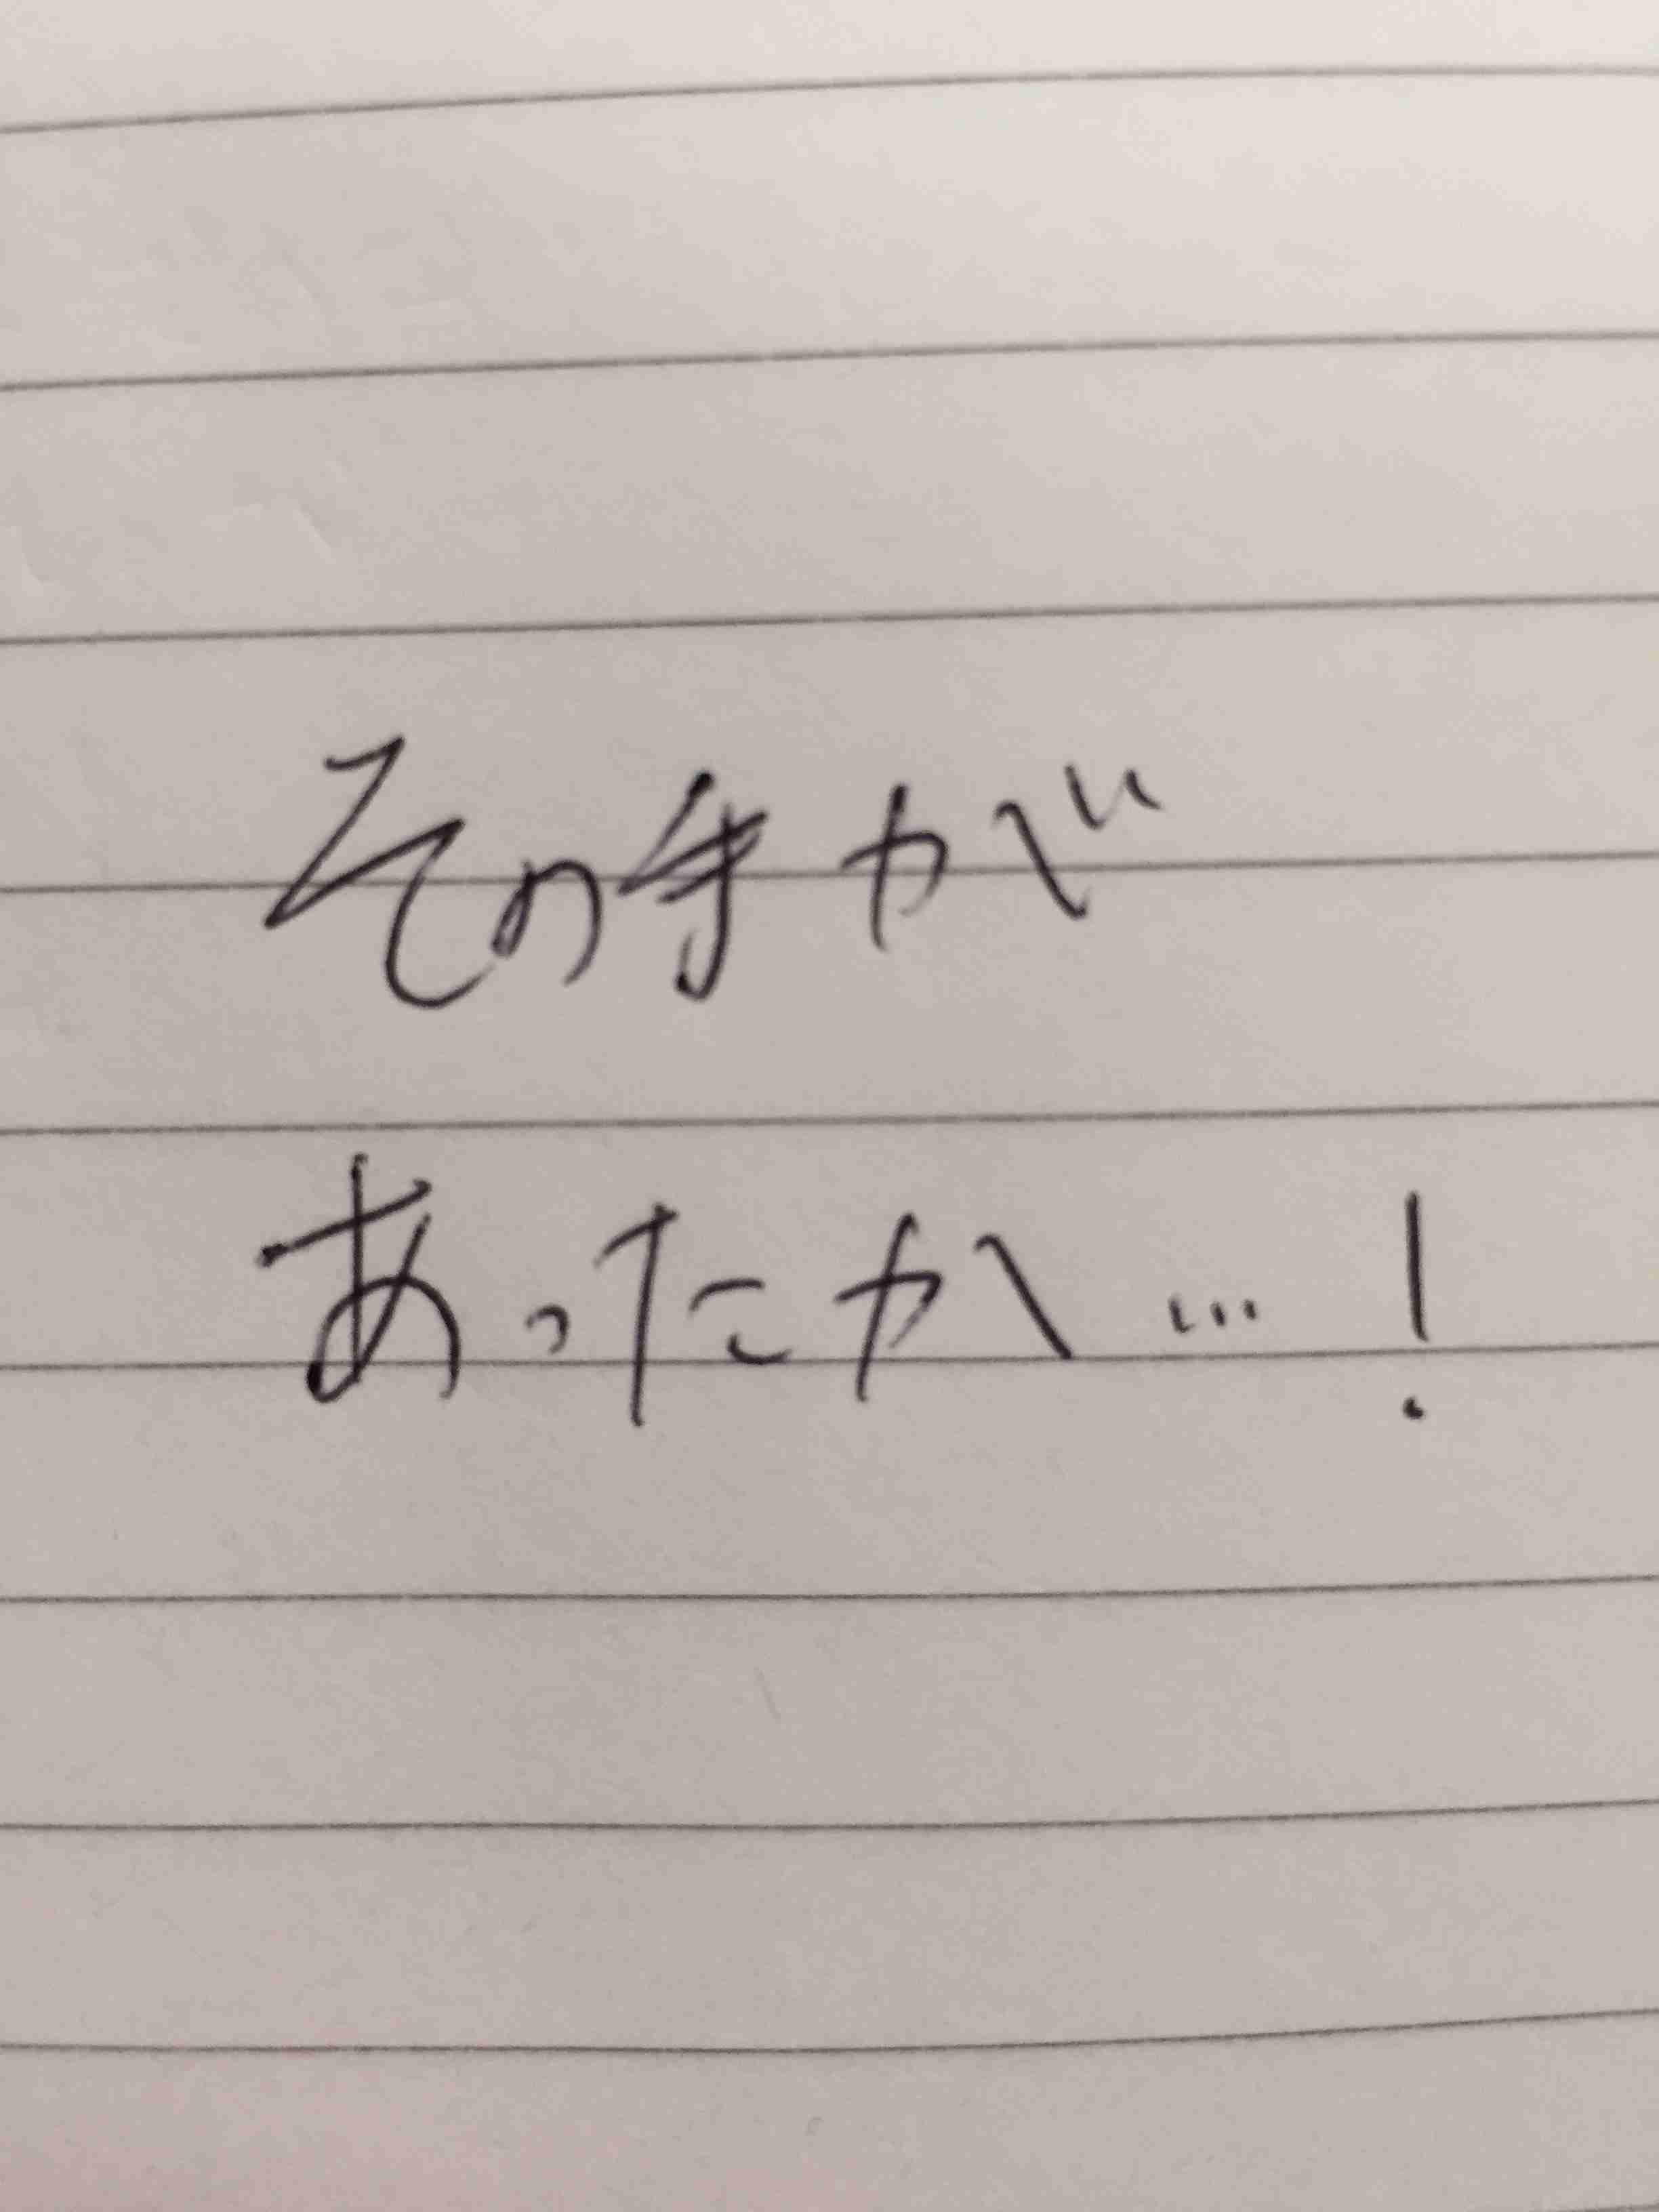 その手が
あったか…!